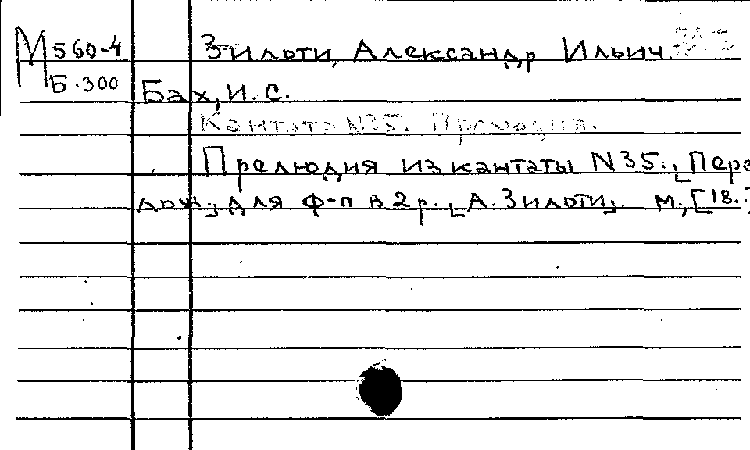 М 560-4 Зилоти, Александр Ильич.
Б-300
Бах, И. С.
Кантата N35. Прелюдия.
Прелюдия из кантаты N35. [Пере
лож.] для ф-п в 2 р. [А. Зилоти]. М., [18.